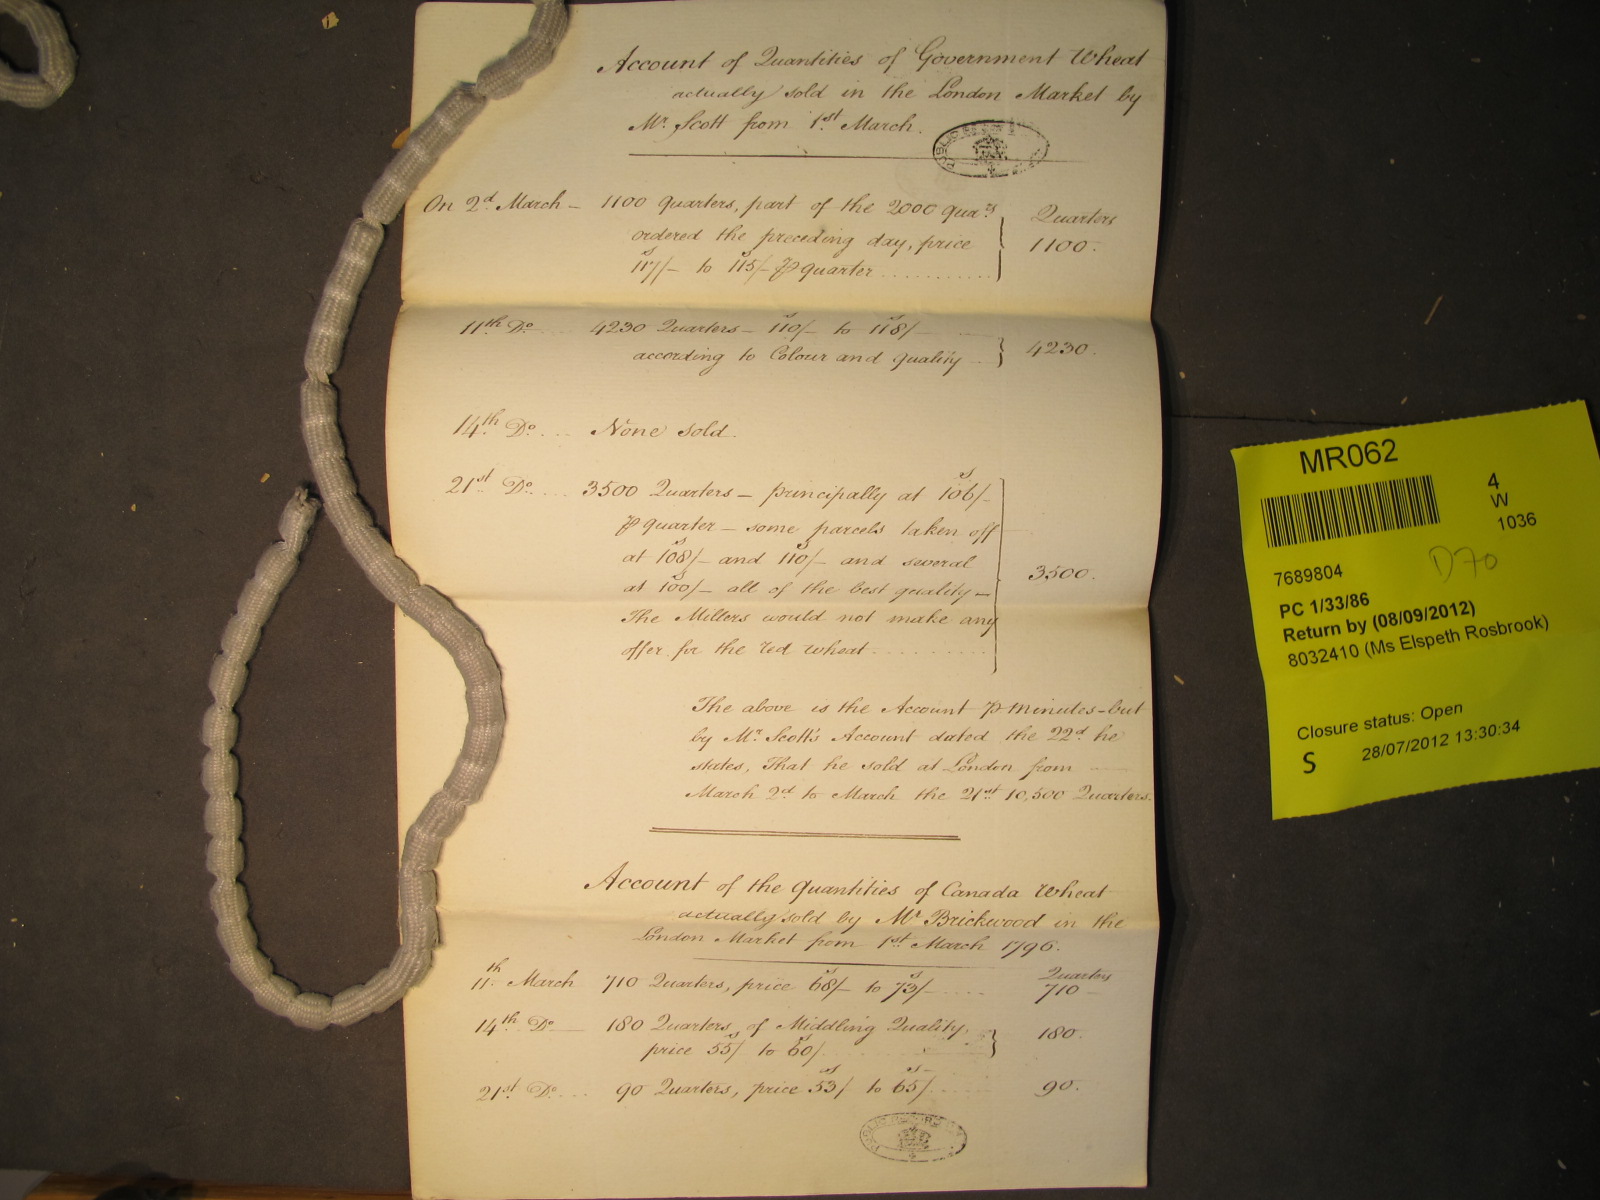 Account of Quantities of Government Wheat
actually sold in the London Market by
Mr. Scott from 1st March.
PUBLIC
On 2d March – 1100 quarters, part of the 2000 quars
ordered the preceding day, price
117/– to 115/– ⅌ quarter
Quarters
1100.
11th Do 4230 Quarters – 110/– to 118/–
according to Colour and quality
4230.
14th Do None sold.
21st Do 3500 Quarters – principally at 106/–
⅌ quarter – some parcels taken off
at 108/– and 110/– and several
at 100/– all of the best quality –
The Millers would not make any
offer for the red wheat
3500.
The above is the Account ⅌ Minutes – but
by Mr Scott's Account dated the 22d he
states, That he sold at London from
March 2d to March the 21st 10,500 Quarters.
Account of the quantities of Canada Wheat
actually sold by Mr Brickwood in the
London Market from 1st March 1796.
Quarters
11th March 710 Quarters, price 68/– to 73/– 710 –
14th Do 180 Quarters, of Middling Quality,
price 55/ to 60/
180.
21st Do 90 Quarters, price 53/ to 65/– 90.
PUBLIC RECORD
MR062
4
W
1036
7689804
D70
PC 1/33/86
Return by (08/09/2012)
8032410 (Ms Elspeth Rosbrook)
Closure status: Open
S 28/07/2012 13:30:34